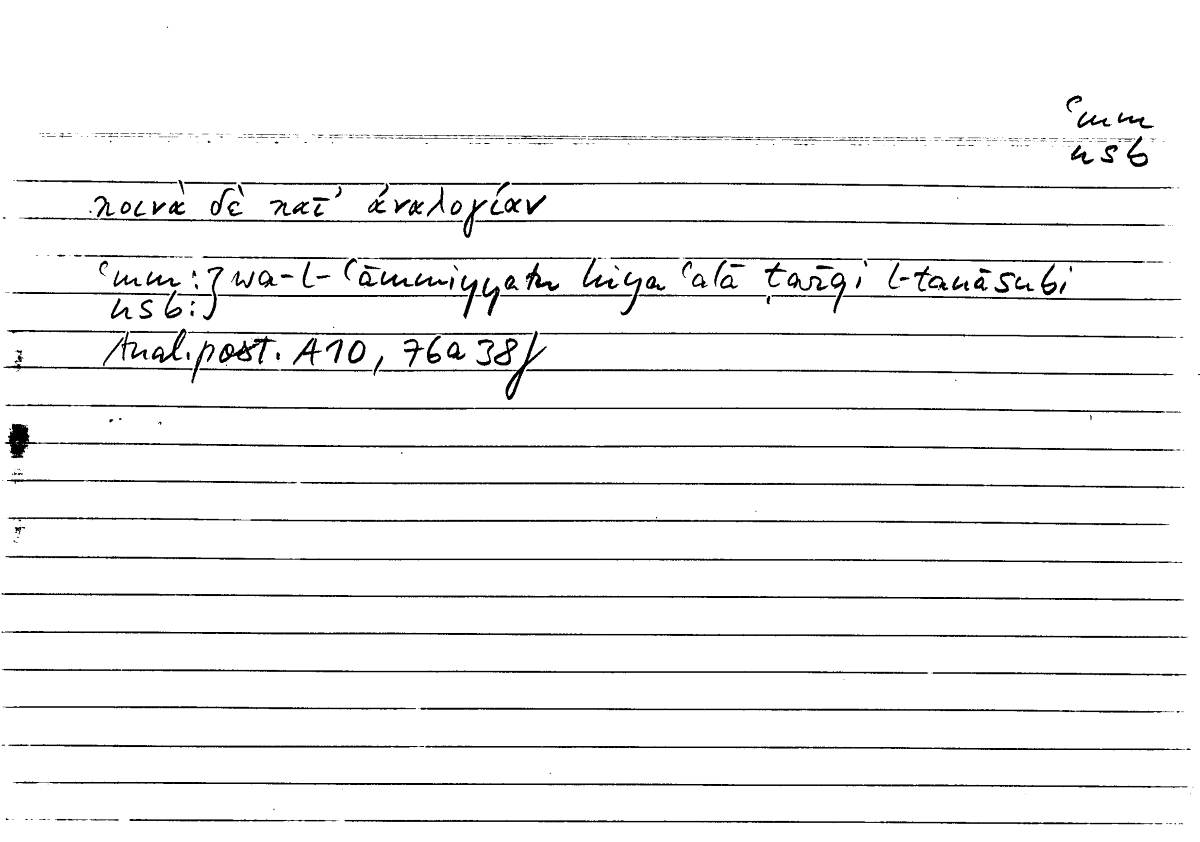 ʿmm
nsb
κοινὰ δὲ κατ’ ἀναλογίαν
ʿmm:} wa-l-ʿāmmiyyatu hiya ʿalā ṭarīqi l-tanāsubi
nsb:}
Anal. post. A10, 76a38f